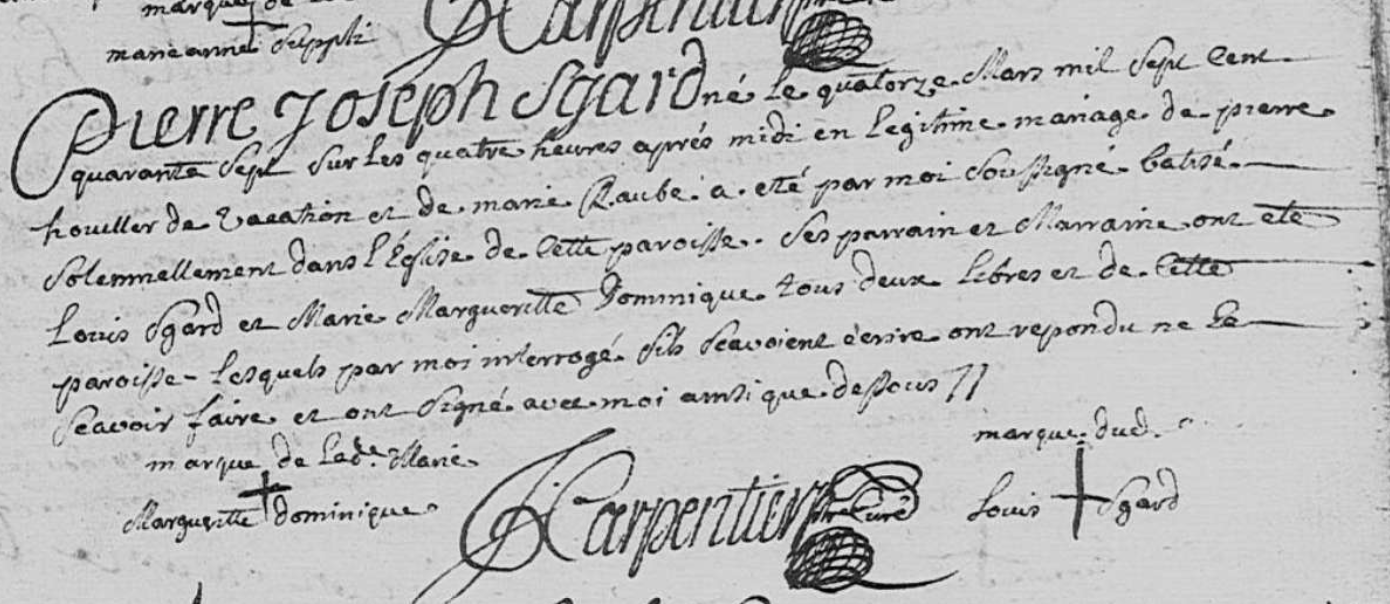 marque de
marie anne + Seppli
Carpentier
Pierre Joseph Sgard né le quatorze Mars mil Sept Cent
quarante Sept Sur les quatre heures aprés midi en legitime mariage de pierre
houiller de Vacation et de marie Raube a eté par moi Soussigné batisé
Solemnellement dans l'Église de Cette paroisse. Ses parrain et Marraine ont eté
Louis Sgard et Marie Margueritte Dominique tous deux libres et de Cette
paroisse lesquels par moi interrogé S'ils Scavoient écrire ont repondu ne le
Scavoir faire et ont Signé avec moi ainsi que dessous //
marque de lade. Marie
Margueritte + dominique
Carpentier ptr Curé
marque dud.
Louis + Sgard